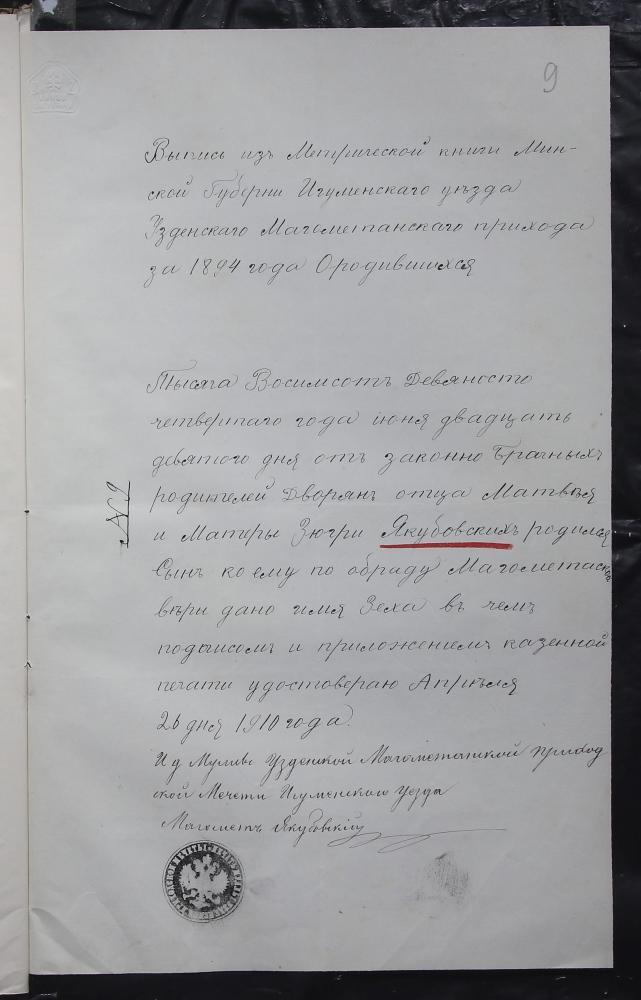 9
Выпись изъ Метрической книги Мин-
ской Губерни Игуменскаго уѣзда
Узденскаго Магометанскаго прихода
за 1894 года О родившихся
Тысяга Восимсотъ Девяносто
четвертаго года июня двадцать
девятого дня отъ законно Брачныхъ
№ 9
родителей Дворянъ отца Матвѣя
и Матеры Зюгри Якубовскихъ родился
Сынъ коему по обраду Магометаской
вѣри дано имя Зеха въ чемъ
подписомъ и приложениемъ казенной
печати удостовераю Апрѣля
26 дня 1910 года.
И д Муллы Узденской Магометанской приход
ской Мечети Игуменского Уезда
Магометъ Якубовскій